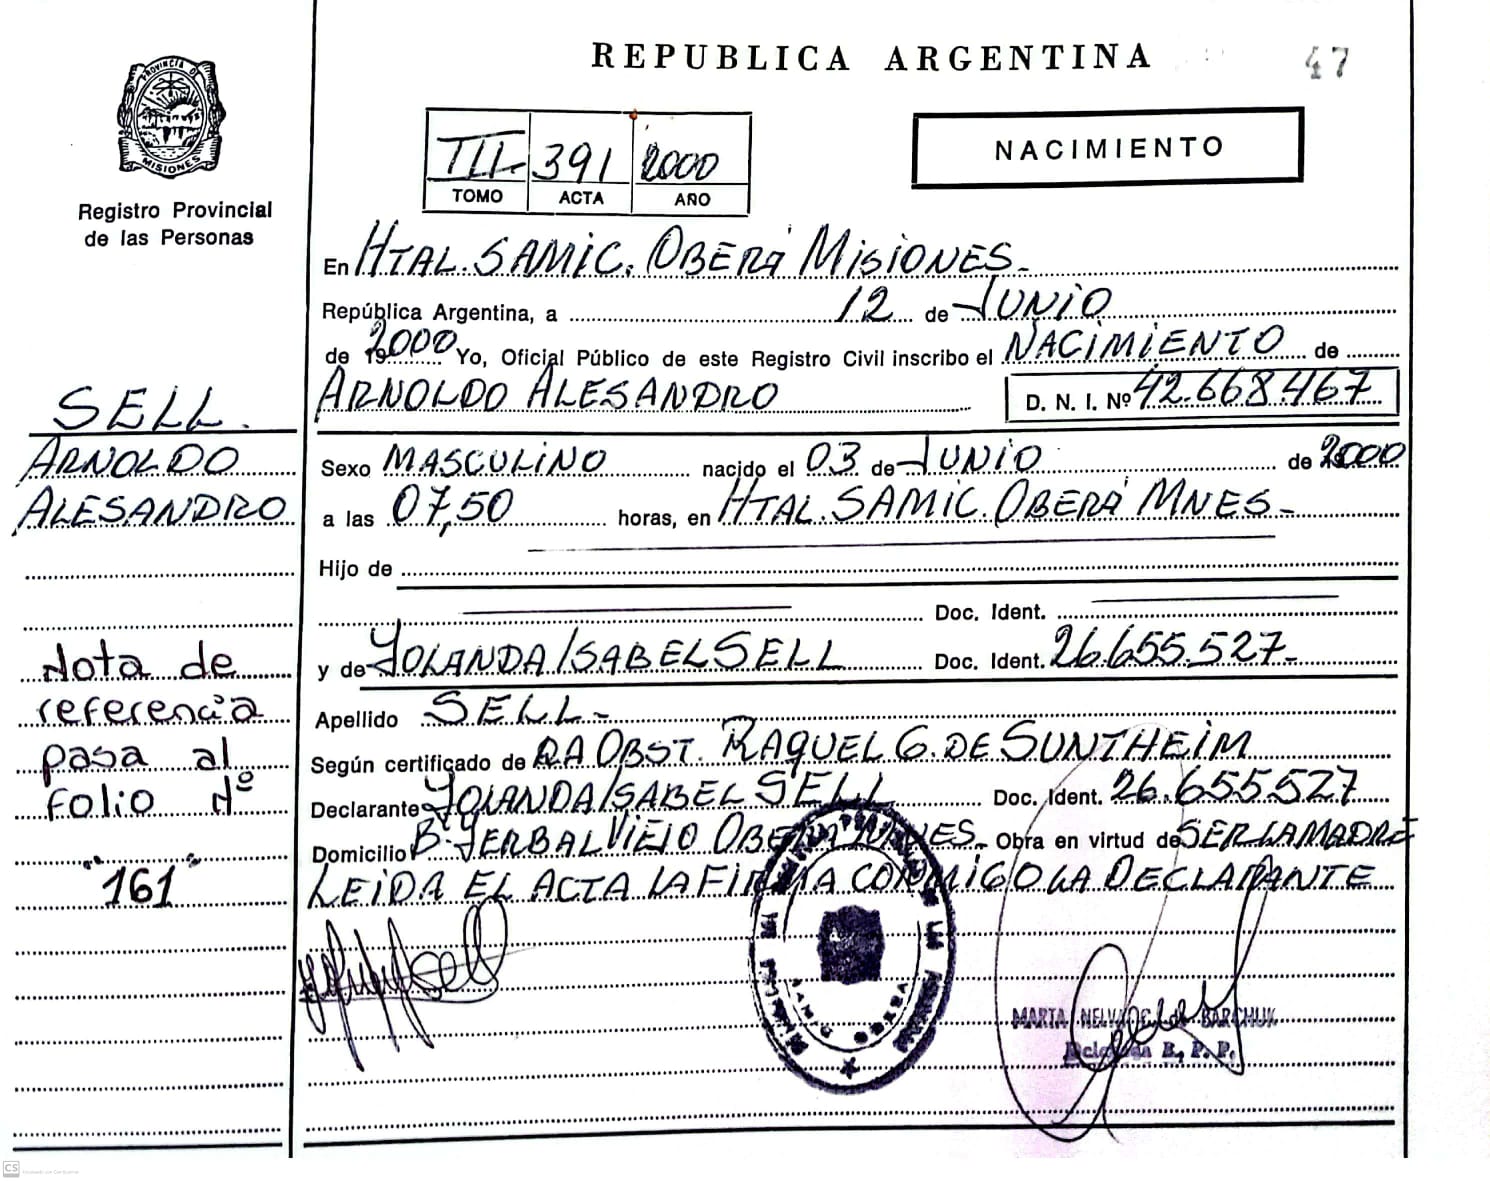 REPUBLICA ARGENTINA
47
PROVINCIA D
MISIONES
Registro Provincial
de las Personas
III 391 2000
TOMO ACTA AÑO
NACIMIENTO
En HTAL. SAMIC. OBERÁ MISIONES.-
República Argentina, a 12 de JUNIO
de 2000 Yo, Oficial Público de este Registro Civil inscribo el NACIMIENTO de
ARNOLDO ALESANDRO D. N. I. Nº 42.668.467
SELL.
ARNOLDO
ALESANDRO
Sexo MASCULINO nacido el 03 de JUNIO de 2000
a las 07,50 horas, en HTAL. SAMIC. OBERÁ MNES.-
Hijo de
Doc. Ident.
y de YOLANDA ISABEL SELL Doc. Ident. 26.655.527.-
Apellido SELL.-
Según certificado de RA OBST. RAQUEL G. DE SUNTHEIM
Declarante YOLANDA ISABEL SELL Doc. Ident. 26.655527
Domicilio Bº YERBAL VIEJO OBERÁ MNES.- Obra en virtud de SER LA MADRE
LEIDA EL ACTA LA FIRMA CONMIGO LA DECLARANTE
Nota de
referencia
pasa al
folio Nº
"161"
MARTA NELVA BARCHUK
Delegada R. P. P.
CS